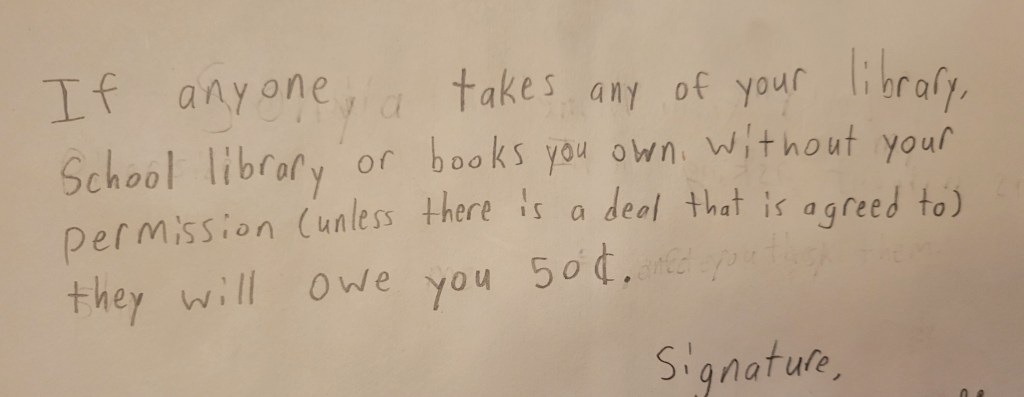 If anyone takes any of your library,
School library or books you own. without your
permission (unless there is a deal that is agreed to)
they will owe you 50¢.
Signature,